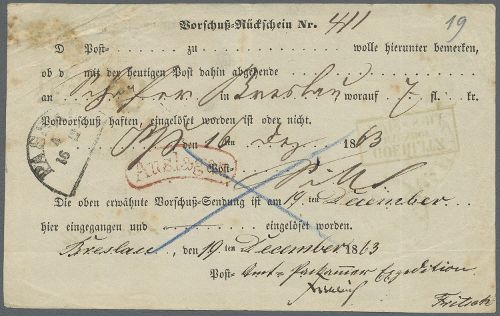 Vorschuß-Rückschein Nr. 411
19
D Post- zu wolle hierunter bemerken,
ob d mit der heutigen Post dahin abgehende
an Schäfer in Breslau worauf 7 fl. kr.
Postvorschuß haften, eingelöset worden ist oder nicht.
den 16 ten Dez. 1863
Auslagen
Post-
Die oben erwähnte Vorschuß-Sendung ist am 19 ten December
hier eingegangen und eingelöset worden.
Breslau, den 19 ten December 1863
Post- Expedition
Fritsch
PASS
16
GOERLITZ